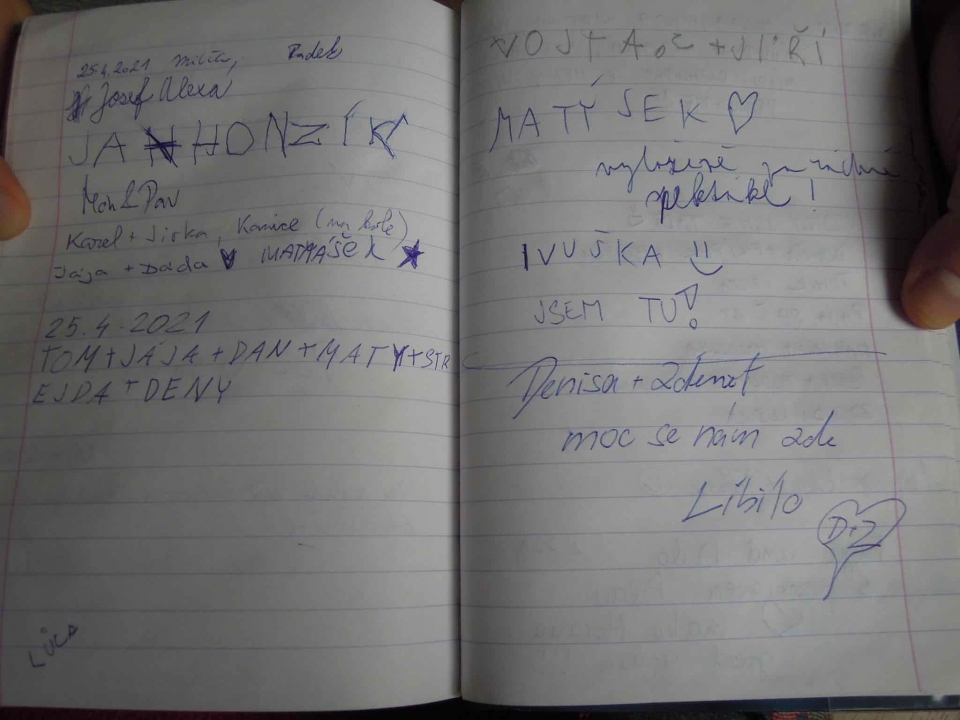 25.4.2021 Radek
Josef Alexa
JAN HONZÍK
Karel + Jirka, Kanice (na kole)
Jája + Dáda MATYÁŠEK
25.4.2021
TOM+JÁJA+DAN+MATY+STR
EJDA+DENY
LŮCA
VOJTA + JIŘÍ
MATÝSEK
vyloženě
spektákl!
IVUŠKA
JSEM TU!
Denisa + Zdenek
moc se nám zde
Líbilo
D+Z